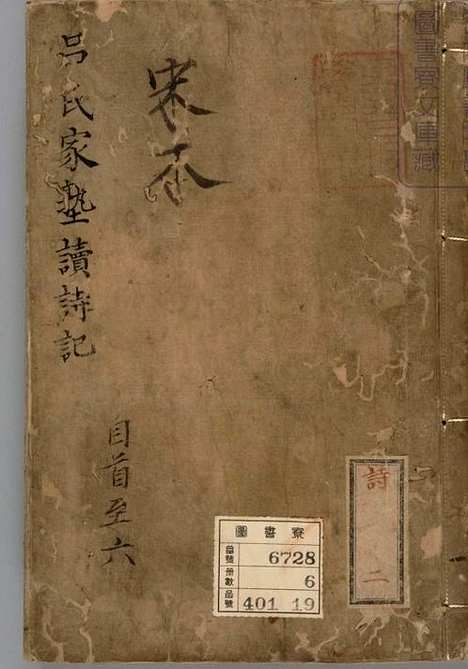 圖書寮文庫藏
宋本
呂氏家塾讀詩記
自首至六
詩
二
圖書寮
番號 6728
册數 6
函號 401 19